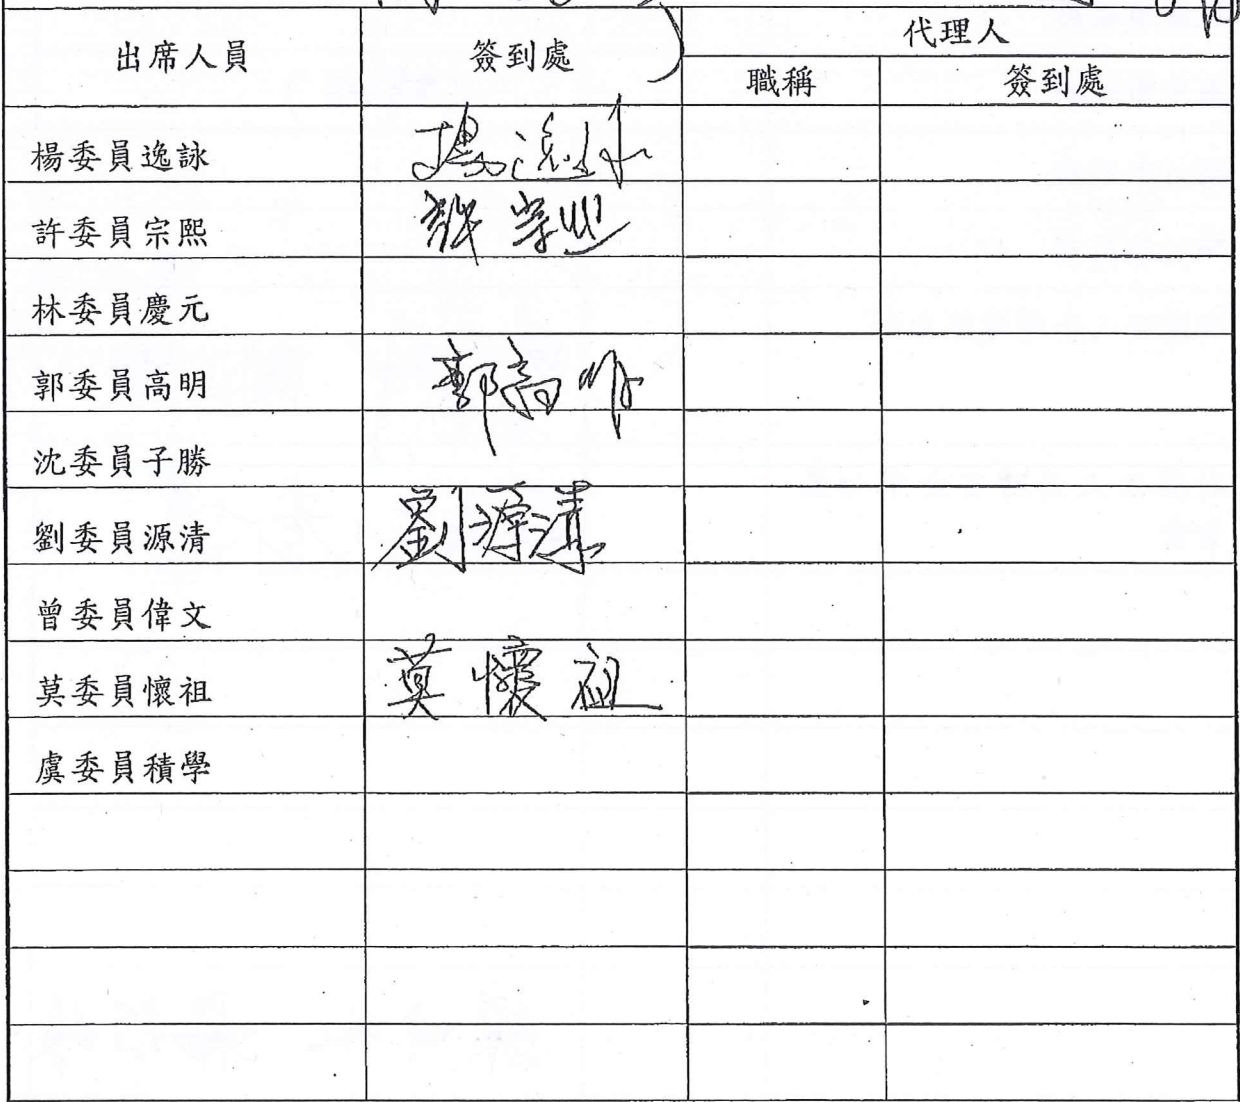 出席人員 簽到處 代理人
職稱 簽到處
楊委員逸詠 楊逸詠
許委員宗熙 許宗熙
林委員慶元
郭委員高明 郭高明
沈委員子勝
劉委員源清 劉源清
曾委員偉文
莫委員懷祖 莫懷祖
虞委員積學